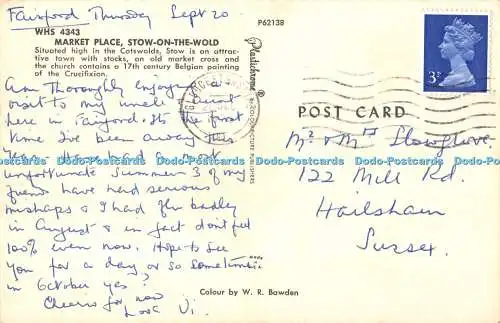 Fairford Thursday Sept 20
WHS 4343
MARKET PLACE, STOW-ON-THE-WOLD
Situated high in the Cotswolds, Stow is an attrac-
tive town with stocks, an old market cross and
the church contains a 17th century Belgian painting
of the Crucifixion.
Am Thoroughly enjoying a
visit to my uncle & aunt
here in Fairford. Its the first
time I've been away this
year
unfortunate Summer 3 of my
friends have had serious
mishaps & I had flu badley
in August & in fact don't feel
100% even now. Hope to see
you for a day or so sometime
in October yes?
Cheerio for now
Love Vi.
P62138
Plastichrome ®
POST CARD
3P
Mr & Mrs Slowgrove
122 Mill Rd.
Hailsham
Sussex.
Colour by W. R. Bawden
Dodo-Postcards Dodo-Postcards Dodo-Postcards Dodo-Postcards Dodo-Postcards